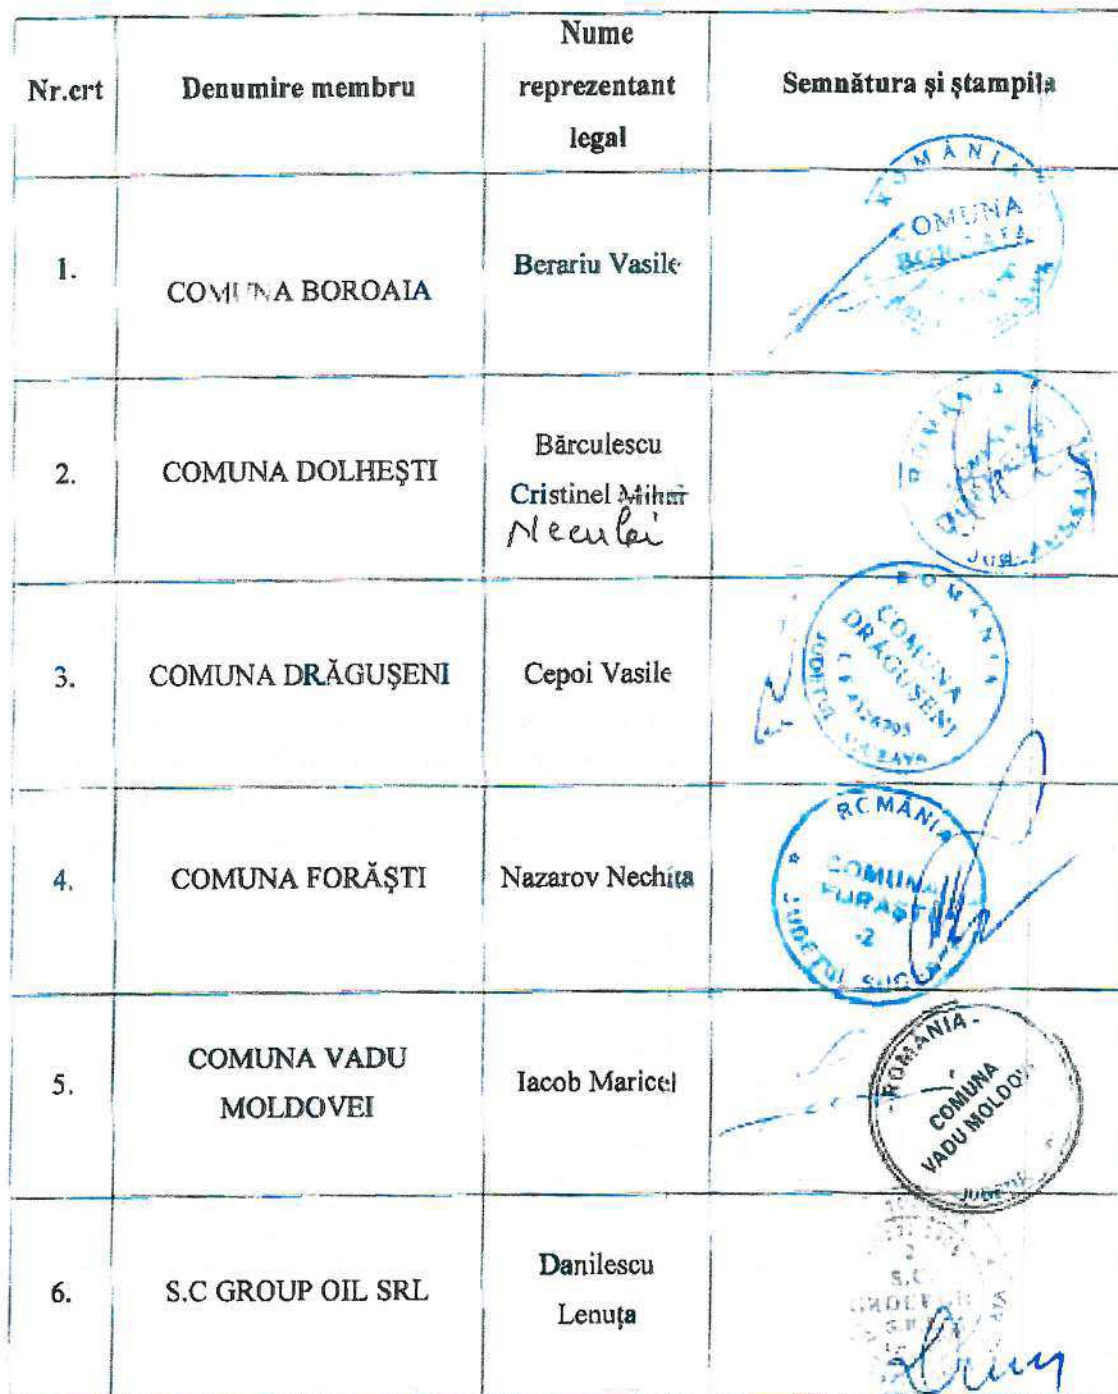 Nr.crt
Denumire membru
Nume
reprezentant
legal
Semnătura și ștampila
1.
COMUNA BOROAIA
Berariu Vasile
ROMÂNIA
COMUNA
2.
COMUNA DOLHEŞTI
Bărculescu
Cristinel Mihai
Neculai
ROMÂNIA
3.
COMUNA DRĂGUŞENI
Cepoi Vasile
ROMÂNIA
COMUNA
DRĂGUŞENI
JUDEŢUL SUCEAVA
4.
COMUNA FORĂŞTI
Nazarov Nechita
ROMÂNIA
COMUNA
FORĂŞTI
-2
JUDEŢUL SUCEAVA
5.
COMUNA VADU
MOLDOVEI
Iacob Maricel
- ROMÂNIA -
COMUNA
VADU MOLDOV
6.
S.C GROUP OIL SRL
Danilescu
Lenuța
S.C.